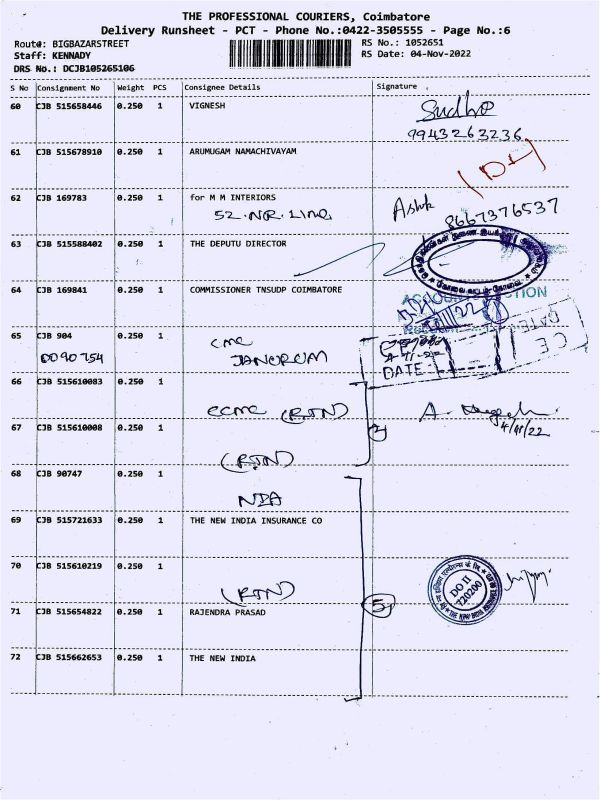 THE PROFESSIONAL COURIERS, Coimbatore
Delivery Runsheet - PCT - Phone No.:0422-3505555 - Page No.:6
Route#: BIGBAZARSTREET
RS No.: 1052651
Staff: KENNADY
RS Date: 04-Nov-2022
DRS No.: DCJB105265106
S No Consignment No Weight PCS Consignee Details Signature
60 CJB 515658446 0.250 1 VIGNESH
Sudha
9943263236
61 CJB 515678910 0.250 1 ARUMUGAM NAMACHIVAYAM
62 CJB 169783 0.250 1 for M M INTERIORS
Ashok
8667376537
52. N.R. Line
63 CJB 515588402 0.250 1 THE DEPUTU DIRECTOR
64 CJB 169841 0.250 1 COMMISSIONER TNSUDP COIMBATORE
65 CJB 904 0.250 1 CMC
0090754 DATE:
66 CJB 515610083 0.250 1
CCMC (RTN)
4/11/22
67 CJB 515610008 0.250 1
(RTN)
68 CJB 90747 0.250 1
NIA
69 CJB 515721633 0.250 1 THE NEW INDIA INSURANCE CO
70 CJB 515610219 0.250 1
DO II
720200
(RTN)
5
71 CJB 515654822 0.250 1 RAJENDRA PRASAD
72 CJB 515662653 0.250 1 THE NEW INDIA